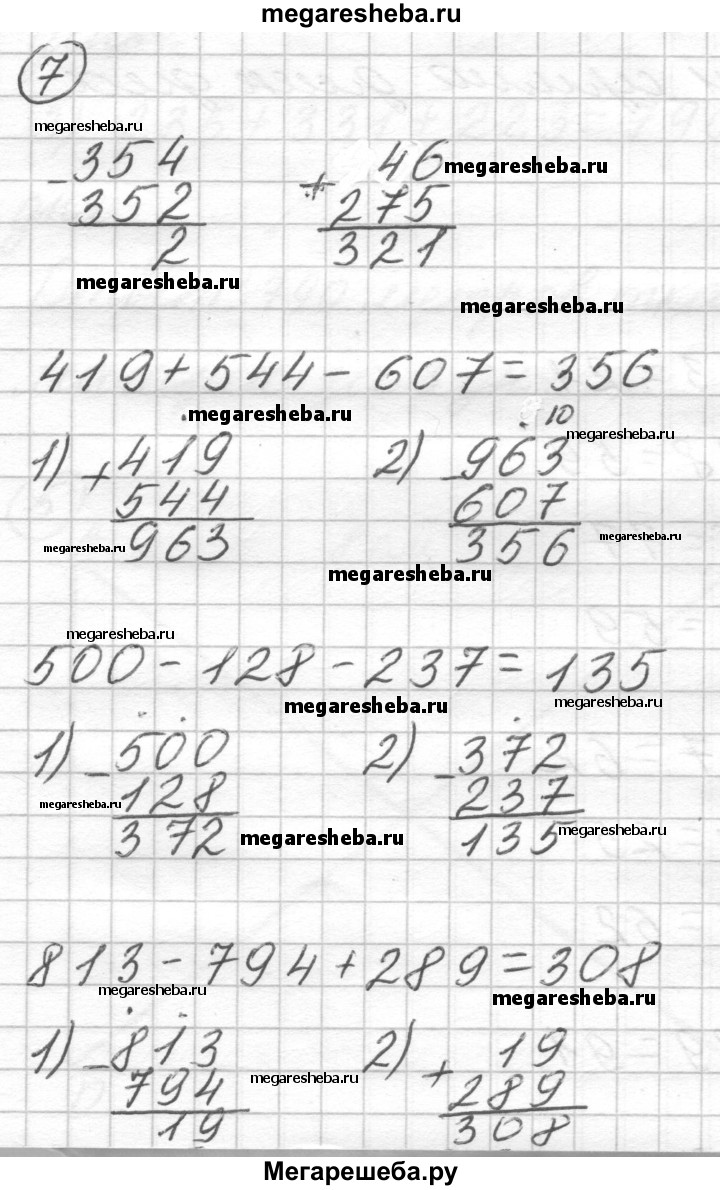 megaresheba.ru
7
megaresheba.ru
- 354 + 46 megaresheba.ru
352 275
2 321
megaresheba.ru
megaresheba.ru
419 + 544 - 607 = 356
megaresheba.ru 10
megaresheba.ru
1) + 419 2) - 963
544 607
963 356
megaresheba.ru megaresheba.ru
megaresheba.ru
megaresheba.ru
500 - 128 - 237 = 135
megaresheba.ru megaresheba.ru
1) - 500 2) - 372
megaresheba.ru 128 237
372 megaresheba.ru 135 megaresheba.ru
813 - 794 + 289 = 308
megaresheba.ru megaresheba.ru
1) - 813 2) + 19
794 megaresheba.ru 289
19 308
Мегарешеба.ру